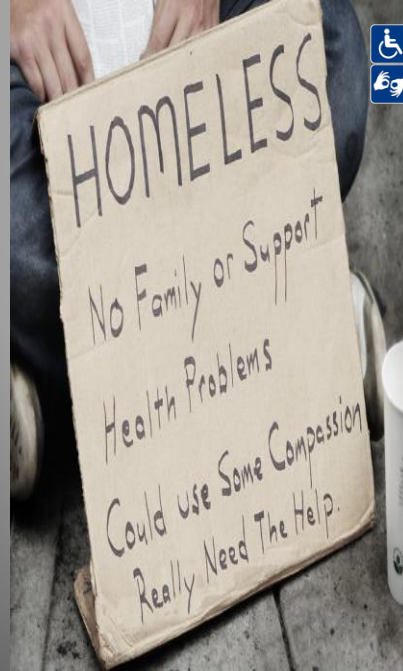 HOMELESS
No Family or Support
Health Problems
Could use Some Compassion
Really Need The Help.